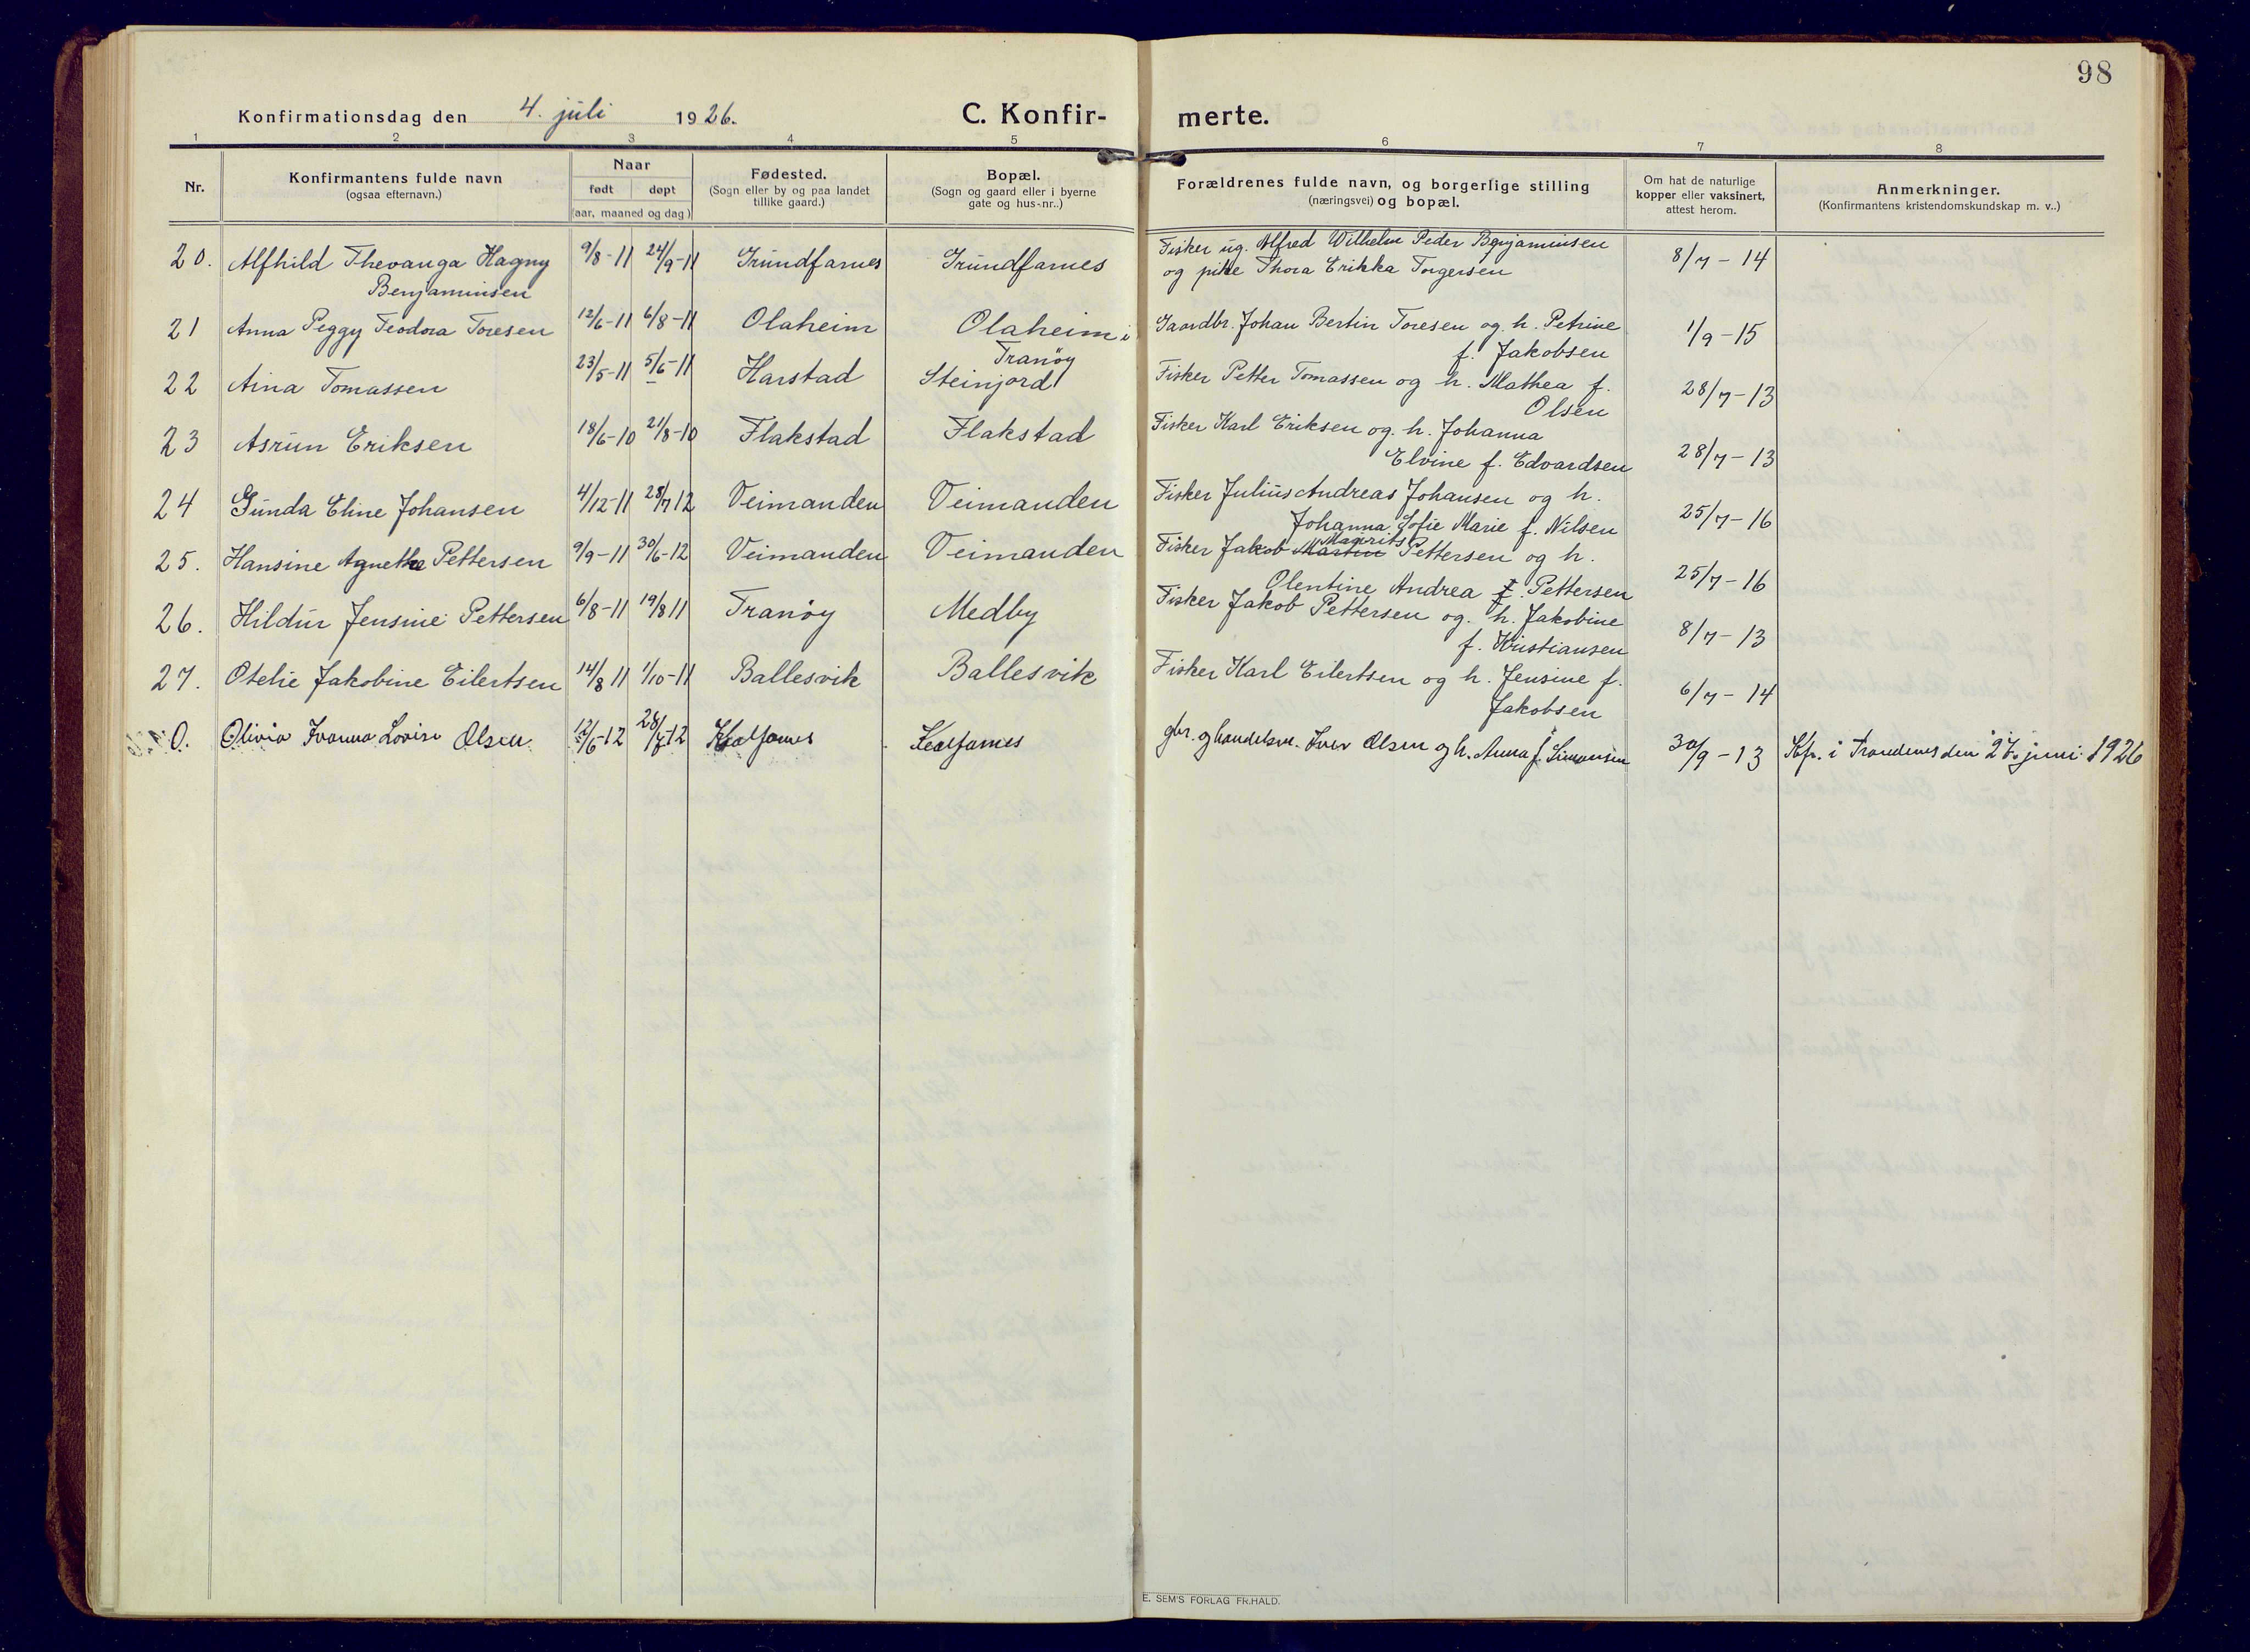 98
Konfirmationsdag den 4. juli 1926. C. Konfir- merte.
1 2 3 4 5 6 7 8
Nr. Konfirmantens fulde navn (ogsaa efternavn.) Naar født døpt (aar, maaned og dag) Fødested. (Sogn eller by og paa landet tillike gaard.) Bopæl. (Sogn og gaard eller i byerne gate og hus-nr..) Forældrenes fulde navn, og borgerlige stilling (næringsvei) og bopæl. Om hat de naturlige kopper eller vaksinert, attest herom. Anmerkninger. (Konfirmantens kristendomskundskap m. v..)
20. Alfhild Thevanga Hagny 9/8-11 24/9-11 Grundfarnes Grundfarnes Fisker ug. Alfred Wilhelm Peder Benjaminsen 8/7-14
Benjaminsen og pike Thora Erikka Torgersen
21 Anna Peggy Teodora Toresen 12/6-11 6/8-11 Olaheim Olaheim i Gaardbr. Johan Bertin Toresen og h. Petrine 1/9-15
Tranöy f. Jakobsen
22 Aina Tomassen 23/5-11 5/6-11 Harstad Steinjord Fisker Petter Tomassen og h. Mathea f. 28/7-13
Olsen
23 Asrun Eriksen 18/6-10 21/8-10 Flakstad Flakstad Fisker Karl Eriksen og h. Johanna 28/7-13
Elvine f. Edvardsen
24 Gunda Eline Johansen 4/12-11 28/7 12 Veimanden Veimanden Fisker Julius Andreas Johansen og h. 25/7-16
Johanna Sofie Marie f. Nilsen
25. Hansine Agnethe Pettersen 9/9-11 30/6-12 Veimanden Veimanden Fisker Jakob Martin Pettersen og h. 25/7-16
Olentine Andrea f. Pettersen
26. Hildur Jensine Pettersen 6/8-11 19/8 11 Tranöy Medby Fisker Jakob Pettersen og h. Jakobine 8/7-13
f. Kristiansen
27. Otelie Jakobine Eilertsen 14/8 11 1/10-11 Ballesvik Ballesvik Fisker Karl Eilertsen og h. Jensine f. 6/7-14
Jakobsen
0. Olivia Ivanna Lovise Olsen 12/6-12 28/7-12 gbr. og handelsm. Iver Olsen og h. Anna f. Simonsen 30/9-13 Kfr. i Trondenes den 27. juni 1926
E. SEM'S FORLAG FR.HALD.